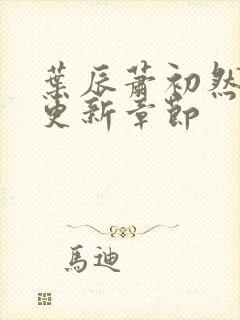 葉辰蕭初然
更新章節
馬迪